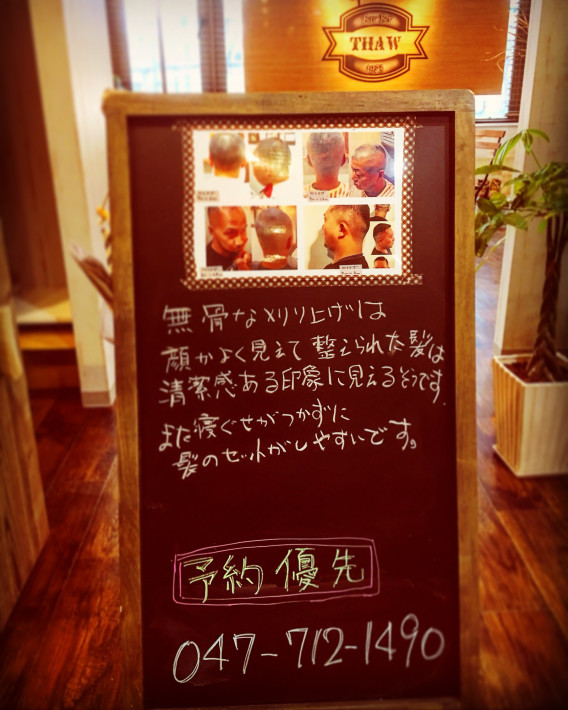 THAW
無骨なメリリ上げは
顔がよく見えて整えられた髪は
清潔感ある印象に見えるそうです.
また寝ぐせがつかずに
髪のセットがしやすいです。
予約優先
047-712-1490